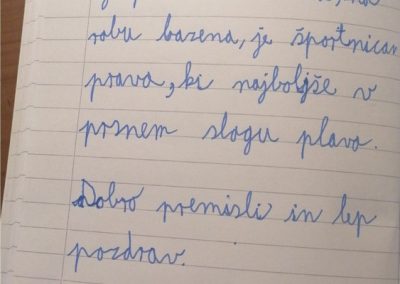 robu bazena, je športnica
prava, ki najboljše v
prsnem slogu plava.
Dobro premisli in lep
pozdrav.